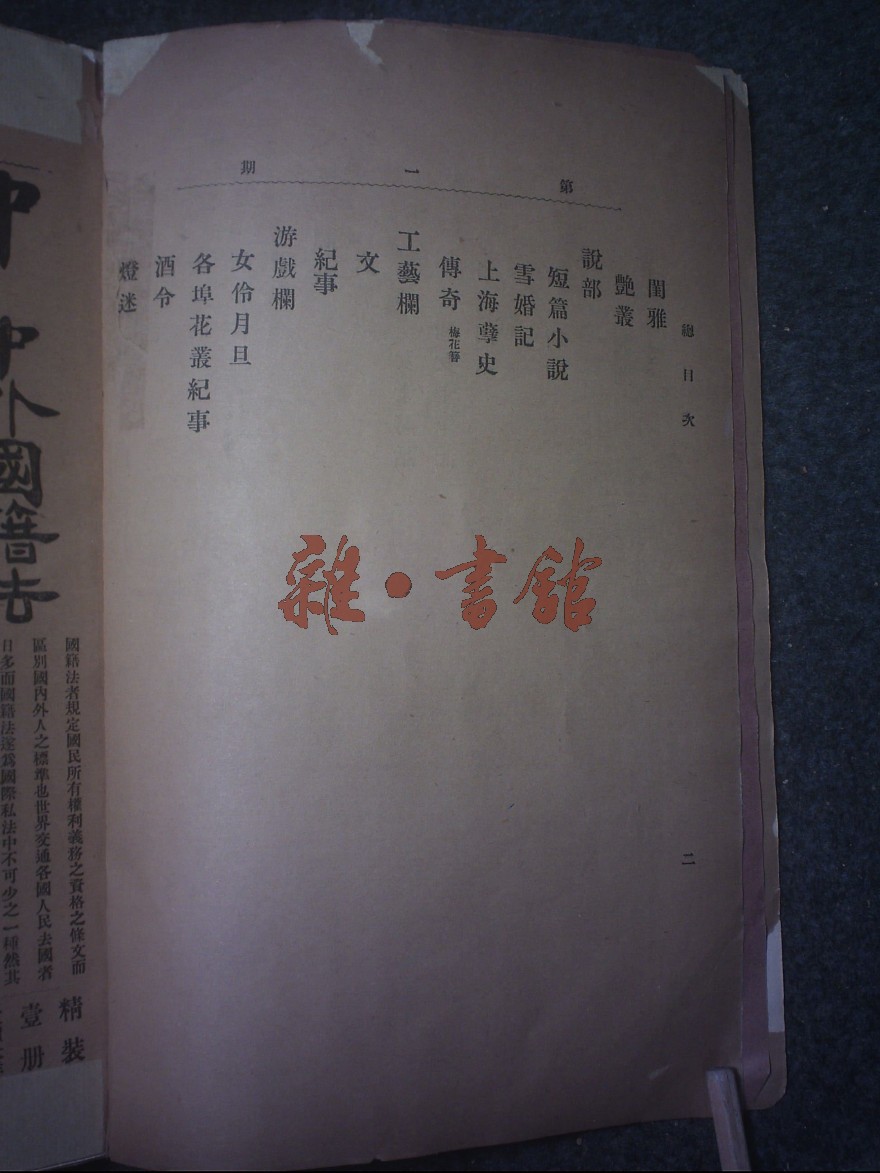 總目次
第一期
閨雅
艷叢
說部
短篇小說
雪婚記
上海孽史
傳奇 梅花簪
工藝欄
文
紀事
游戲欄
女伶月旦
各埠花叢紀事
酒令
燈迷
二
雜·書館
外國籍法
國籍法者規定國民所有權利義務之資格之條文而
區別國內外人之標準也世界交通各國人民去國者
日多而國籍法遂為國際私法中不可少之一種然其
精裝
壹册